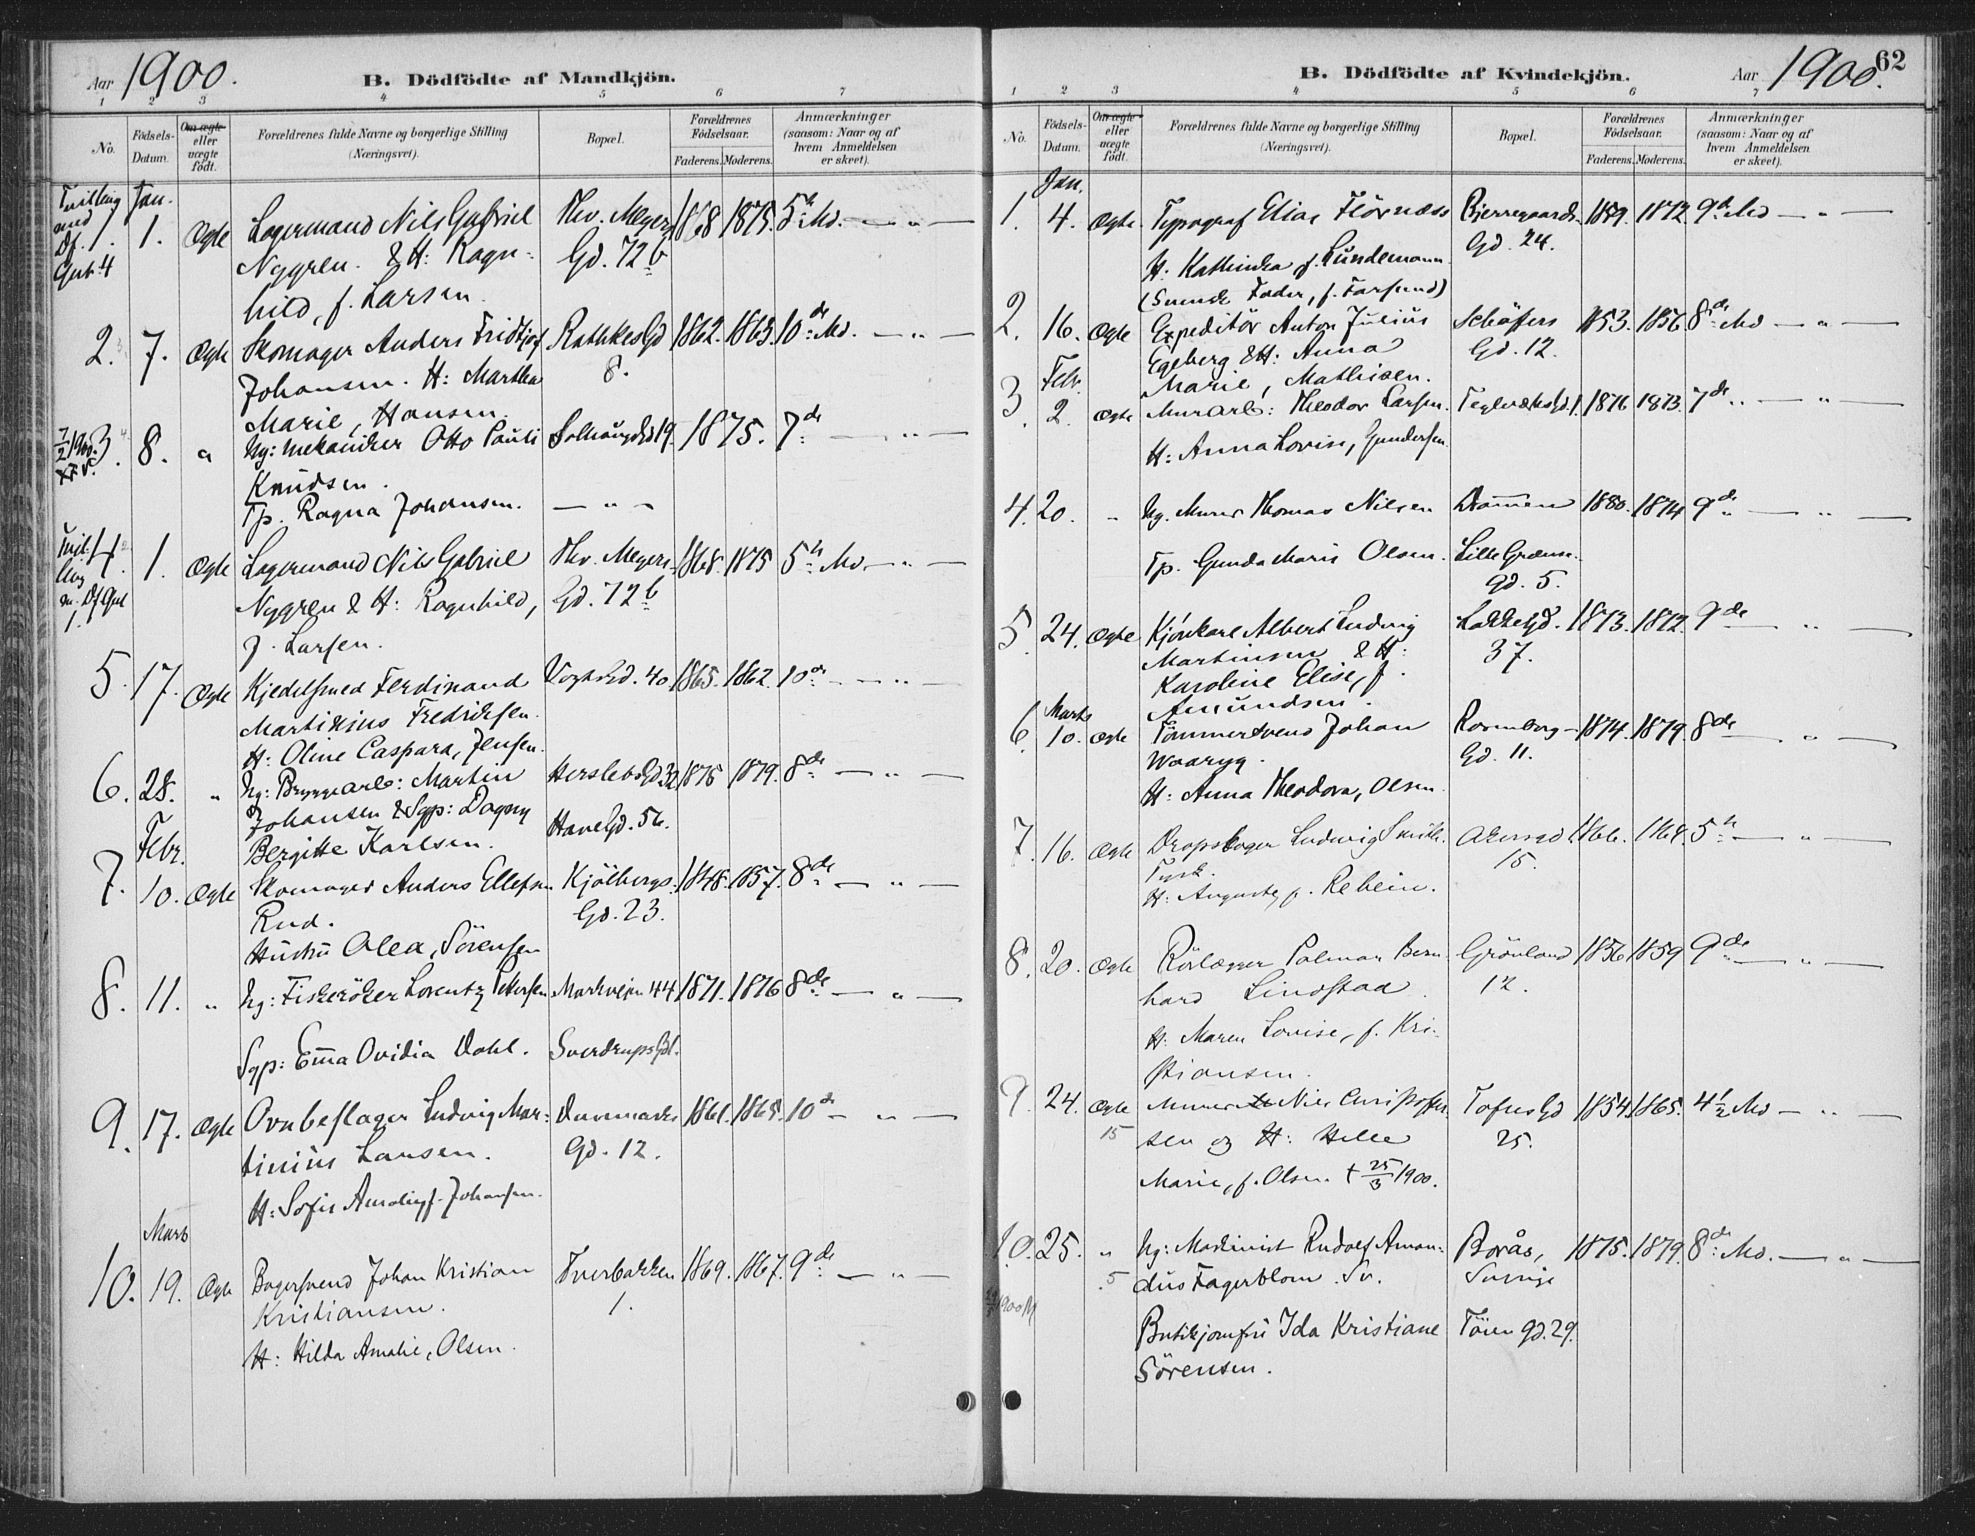 Aar 1900.
B. Dödfödte af Mandkjön.
1 2 3 4 5 6 7
No.
Födsels-
Datum.
Om ægte
eller
uægte
født.
Forældrenes fulde Navne og borgerlige Stilling
(Næringsvei).
Bopæl.
Forældrenes
Födselsaar.
Faderens. Moderens.
Anmærkninger
(saasom: Naar og af
hvem Anmeldelsen
er skeet).
Tvilling
med
Df.
Gut 4
Jan.
1. 1. Ægte Lagermand Nils Gabriel Thv. Meyers 1868 1875. 5te Md. — " —
Nygren. & H: Ragn- Gd. 72b
hild, f. Larsen.
2. 7. Ægte Skomager Anders Fridtjof RathkesGd 1862. 1863. 10de Md. — " —
Johansen. H: Martha 8.
Marie, Hansen.
3. 8. " Ug: mekaniker Otto Pauli SolhaugGd 19. 1875. 7de — " —
Knudsen.
Tp. Ragna Johansen. — " —
Tvil-
ling
m. Df Gut
1.
4. 1. Ægte Lagermand Nils Gabriel Thv. Meyers 1868. 1875 5te Md. — " —
Nygren & H: Ragnhild, Gd. 72b
f. Larsen.
5. 17. Ægte Kjedelsmed Ferdinand VogtsGd. 40 1865. 1862. 10de — " —
Martinius Fredriksen.
H: Oline Caspara, Jensen.
6. 28. " Ug: Bryggearb: Martin HerslebsGd 32 1875 1879. 8de — " —
Johansen & Sgp: Dagny HaveGd. 56.
Bergitte Karlsen.
Febr.
7. 10. Ægte Skomager Anders Ellefsen Kjölbergs- 1848. 1857. 8de — " —
Rud. Gd. 23.
Hustru Olea, Sörensen
8. 11. " Ug: Fiskeröker Lorentz Pettersen Markveien 44 1871. 1876 8de — " —
Sgp: Emma Ovidia Dahl. SverdrupsGd 1.
9. 17. Ægte Ovnbeslager Ludvig Mar- Danmarks 1861. 1865. 10de — " —
tinius Larsen. Gd. 12.
H: Sofie f. Johansen.
Marts
10. 19. Ægte Bagersvend Johan Kristian Tverbakken 1869. 1867. 9de — " —
Kristiansen. 1.
H: Hilda Amalie, Olsen.
B. Dödfödte af Kvindekjön.
Aar 1900.
62
1 2 3 4 5 6 7
No.
Födsels-
Datum.
Om ægte
eller
uægte
født.
Forældrenes fulde Navne og borgerlige Stilling
(Næringsvei).
Bopæl.
Forældrenes
Födselsaar.
Faderens. Moderens.
Anmærkninger
(saasom: Naar og af
hvem Anmeldelsen
er skeet).
Jan.
1. 4. Ægte Typograf Elias Flörnæss Bjerregaards- 1859. 1872. 9de Md — " —
H: Kathinka f. Lundemann Gd. 24.
(Svensk Fader, f. Farsund)
2. 16. Ægte Expeditör Anton Julius Schöffers 1853. 1856 8de Md — " —
Egeberg & H: Anna Gd. 12.
Marie, Mathisen.
Febr.
3. 2. Ægte Murarb: Theodor Larsen. TeglværksGd. 1. 1876 1873. 7de " — " —
H: Anna Lovise, Gundersen
4. 20. " Ug. Murer Thomas Nilsen Drammen 1880. 1874 9de — " —
Tp. Gunda Marie Olsen. Lille Grændse-
gd. 5.
5. 24. Ægte Kjörekarl Albert Ludvig LakkeGd. 1873. 1872. 9de — " —
Martinsen & H: 37.
Karoline Elise, f.
Amundsen.
Marts
6. 10. Ægte Tömmersvend Johan Rosenborg- 1874. 1879. 8de — " —
Waaryg. Gd. 11.
H: Anna Theodora, Olsen.
7. 16. Ægte Dropskoger Ludwig Smith. AkersGd. 1866. 1864. 5te — " —
Tysk. 15.
H: Auguste, f. Rehein.
8. 20. Ægte Rörlægger Palmar Bern- Grönland 1856 1859 9de — " —
hard Lindstad 12.
H: Maren Lovise, f. Kri-
stiansen.
9. 24. Ægte Murer Nils Christoffer- ToftesGd 1854. 1865. 4½ Md — " —
15 sen og H: Helle 25.
Marie, f. Olsen. † 25/3 1900.
10. 25. " Ug: Maskinist Rudolf Aman- Borås, 1875. 1879. 8de Md. — " —
5 dus Fagerblom. Sv. Sverige
Butikjomfru Ida Kristiane Töien gd. 29.
Sörensen.